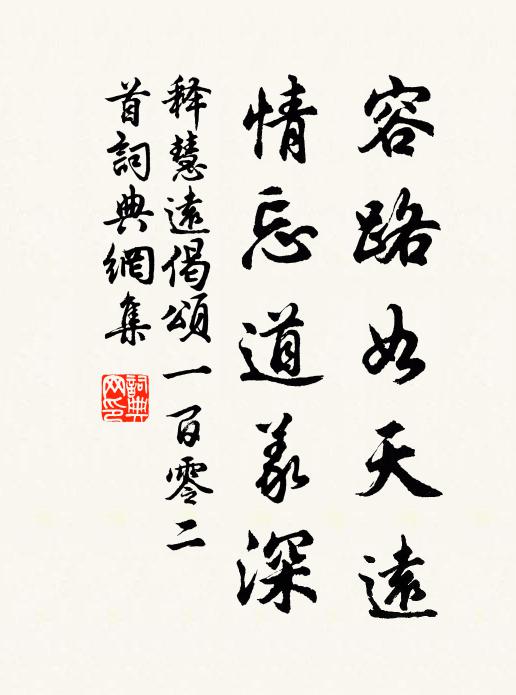 容路如天遠
情忘道義深
释慧遠偈頌一百零二
首詞典網集
詞典網印